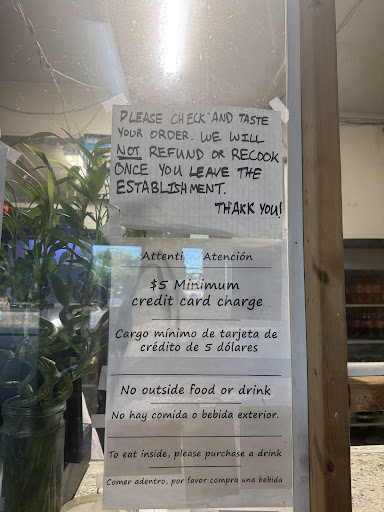 PLEASE CHECK AND TASTE
YOUR ORDER. WE WILL
NOT REFUND OR RECOOK
ONCE YOU LEAVE THE
ESTABLISHMENT.
THANK YOU!
Attenti Atención
$5 Minimum
credit card charge
Cargo mínimo de tarjeta de
crédito de 5 dólares
No outside food or drink
No hay comida o bebida exterior.
To eat inside, please purchase a drink
Comer adentro, por favor compra una bebida